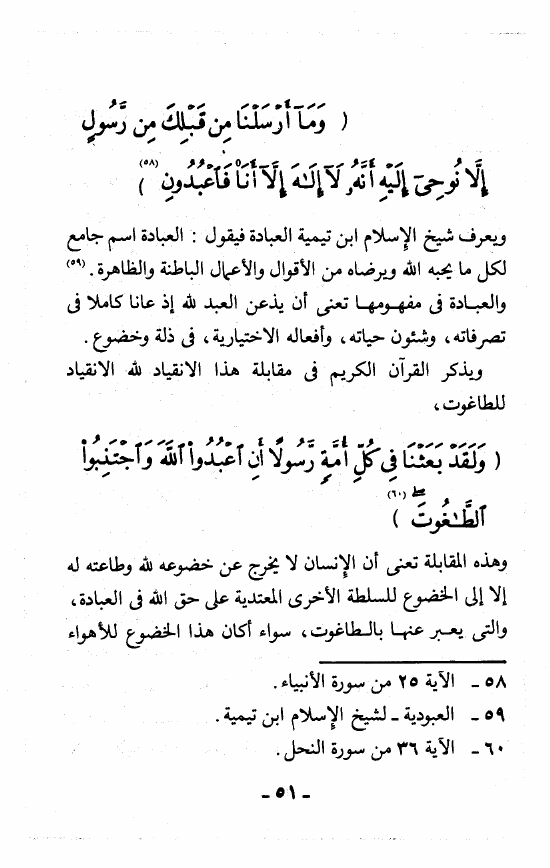 ( وَمَآ أَرْسَلْنَا مِن قَبْلِكَ مِن رَّسُولٍ
إِلَّا نُوحِىٓ إِلَيْهِ أَنَّهُۥ لَآ إِلَٰهَ إِلَّآ أَنَا۠ فَٱعْبُدُونِ (٥٨) )
ويعرف شيخ الإسلام ابن تيمية العبادة فيقول : العبادة اسم جامع
لكل ما يحبه الله ويرضاه من الأقوال والأعمال الباطنة والظاهرة . (٥٩)
والعبادة فى مفهومها تعنى أن يذعن العبد لله إذ عانا كاملا فى
تصرفاته، وشئون حياته، وأفعاله الاختيارية، فى ذلة وخضوع .
ويذكر القرآن الكريم فى مقابلة هذا الانقياد لله الانقياد
للطاغوت،
( وَلَقَدْ بَعَثْنَا فِى كُلِّ أُمَّةٍ رَّسُولًا أَنِ ٱعْبُدُوا۟ ٱللَّهَ وَٱجْتَنِبُوا۟
ٱلطَّٰغُوتَ ۖ (٦٠) )
وهذه المقابلة تعنى أن الإنسان لا يخرج عن خضوعه لله وطاعته له
إلا إلى الخضوع للسلطة الأخرى المعتدية على حق الله فى العبادة،
والتى يعبر عنها بالطاغوت، سواء أكان هذا الخضوع للأهواء
٥٨ ـ الآية ٢٥ من سورة الأنبياء .
٥٩ ـ العبودية ـ لشيخ الإسلام ابن تيمية .
٦٠ ـ الآية ٣٦ من سورة النحل .
ـ ٥١ ـ